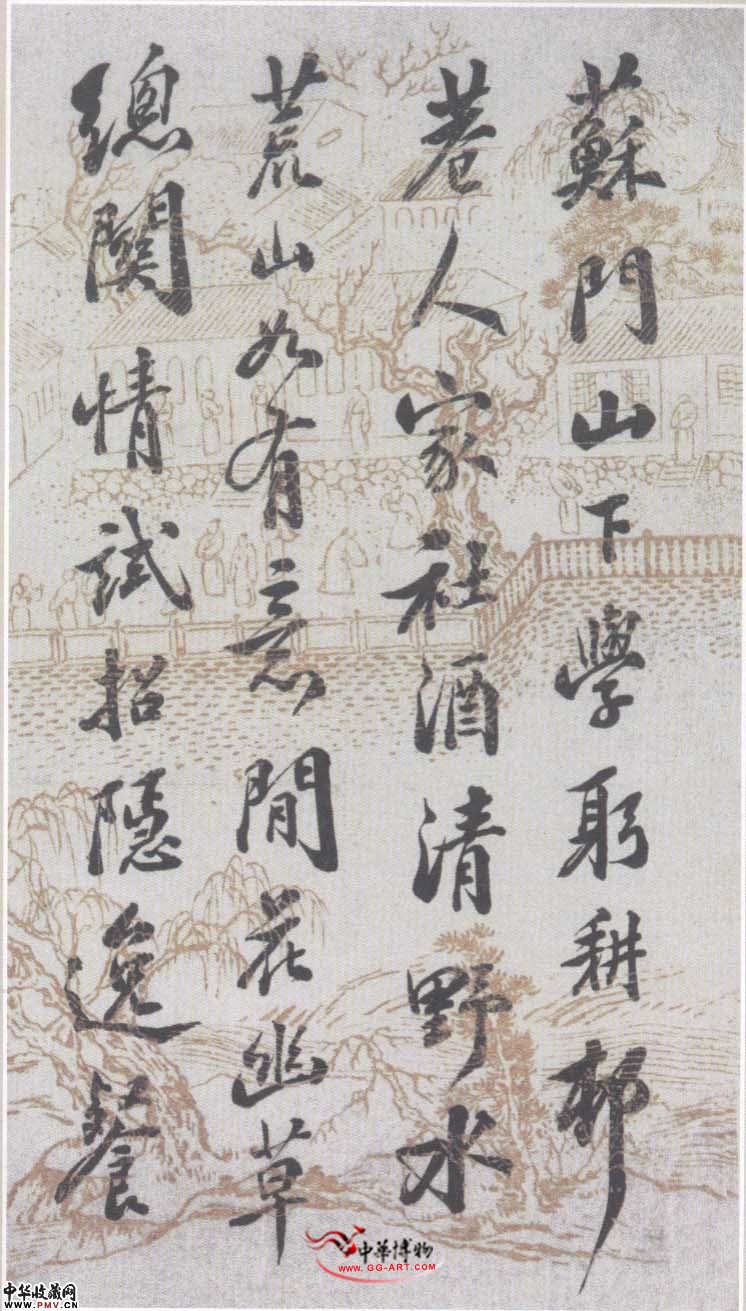 蘇門山下學躬耕邨
巷人家社酒清野水
荒山如有意閒花幽草
總關情試招隱逸餐
中華博物
WWW.GG-ART.COM
中华收藏网
WWW.PMV.CN